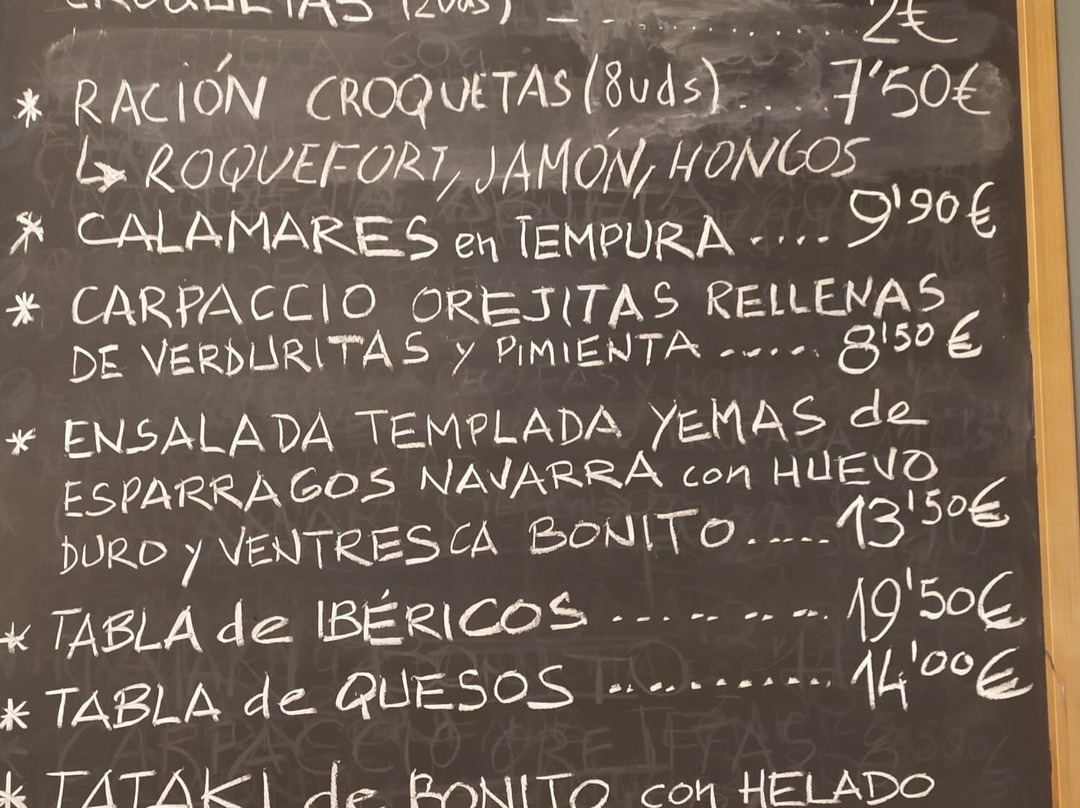 CROQUETAS (2uds) ......... 2€
* RACIÓN CROQUETAS (8uds) .... 7'50€
↳ ROQUEFORT, JAMÓN, HONGOS
* CALAMARES en TEMPURA ..... 9'90€
* CARPACCIO OREJITAS RELLENAS
DE VERDURITAS y PIMIENTA ...... 8'50€
* ENSALADA TEMPLADA YEMAS de
ESPARRAGOS NAVARRA con HUEVO
DURO y VENTRESCA BONITO ...... 13'50€
* TABLA de IBÉRICOS ......... 19'50€
* TABLA de QUESOS .......... 14'00€
* TATAKI de BONITO con HELADO